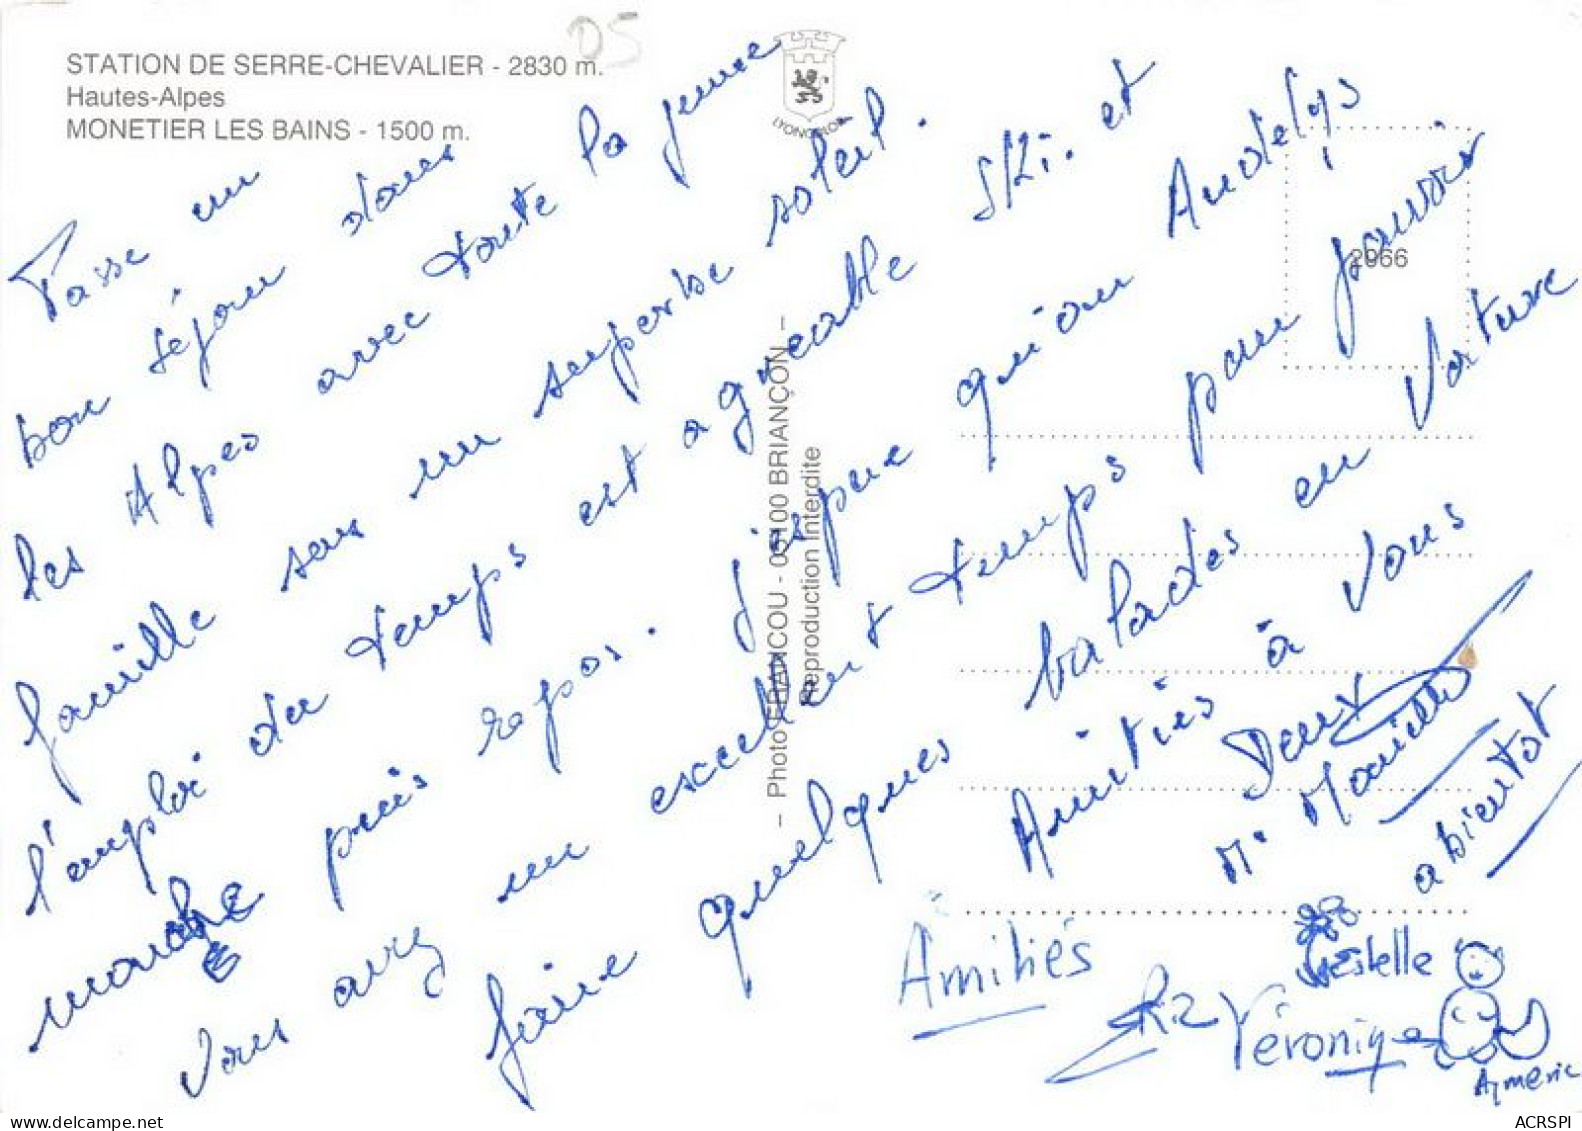 STATION DE SERRE-CHEVALIER - 2830 m.
Hautes-Alpes
MONETIER LES BAINS - 1500 m.
05
LYONCOLOR
2066
Passe un
bon séjour dans
les Alpes avec toute la jeune
famille sous un superbe soleil.
l'emploi du temps est agréable Ski. et
marche puis repos. J'espère qu'ou Andelys
Vous avez un excellent temps pour pouvoir
faire quelques balades en Voiture
Amitiés à Vous
Deux
M. Marielle
a bientot
Amitiés
Eric
Estelle
Véronique
Aymeric
– Photo FRANCOU - 05100 BRIANÇON –
Reproduction Interdite
ACRSPI
delcampe.net